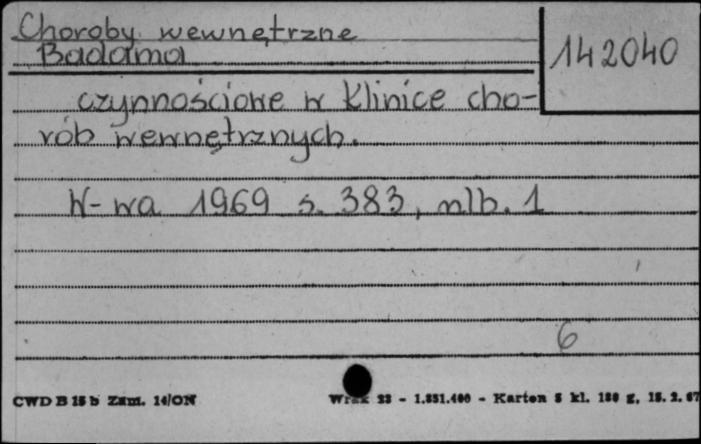 Choroby wewnętrzne
142040
Badama
czynnościowe w klinice cho-
rób wewnętrznych.
W-wa 1969 s. 383, nlb. 1
6
CWD B 15 b Zam. 14/ON
23 - 1.831.400 - Karton 5 kl. 180 g, 15. 2. 67